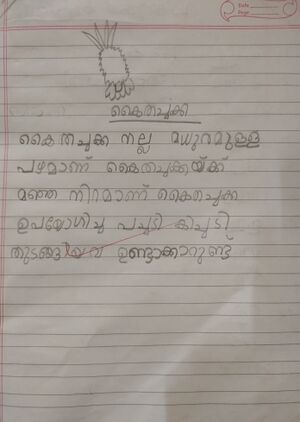 Date
Page
കൈതച്ചക്ക
കൈതച്ചക്ക നല്ല മധുരമുള്ള
പഴമാണ് കൈതച്ചക്കയ്ക്ക്
മഞ്ഞ നിറമാണ് കൈതച്ചക്ക
ഉപയോഗിച്ച് പച്ചടി കിച്ചടി
തുടങ്ങിയവ ഉണ്ടാക്കാറുണ്ട്